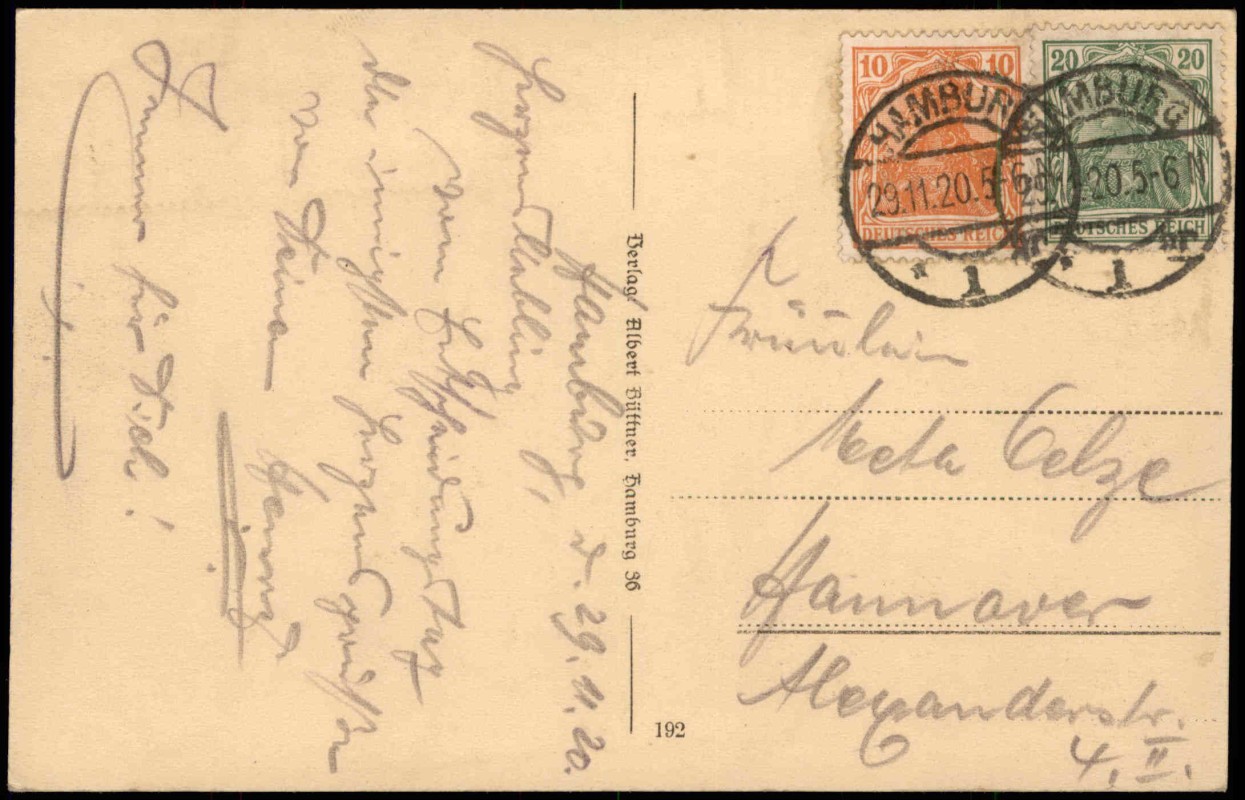 Hamburg, d. 29.11.20.
Herzensliebling,
vom Entscheidungstag
die innigsten Herzensgrüße
von Deinem
Immer für Dich!
Verlag Albert Büttner, Hamburg 36
192
10 10
DEUTSCHES REICH
20 20
DEUTSCHES REICH
HAMBURG
29.11.20.5-6N
* 1
HAMBURG
29.11.20.5-6N
* 1
Fräulein
Meta Oelze
Hannover
Alexanderstr.
4. II.